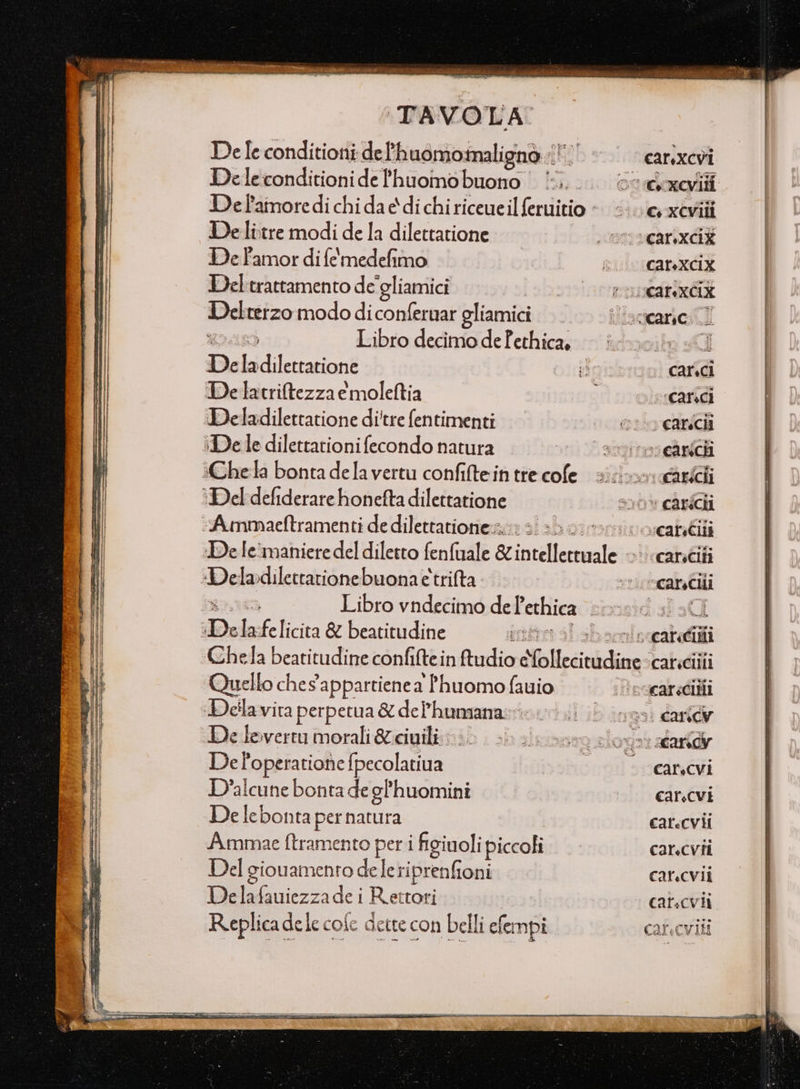 TAVOLA
De le conditioni de l'huomo maligno car.xcvi
De le conditioni de l'huomo buono c. xcviii
De l'amore di chi da e' di chi riceue il ſeruitio c. xcviii
De li tre modi de la dilettatione car.xcix
De l'amor di ſe' medeſimo car.xcix
Del trattamento de' gli amici car.xcix
Del terzo modo di conſeruar gli amici car.c
Libro decimo de l'ethica,
De la dilettatione car.ci
De la triſtezza e' moleſtia car.ci
De la dilettatione di' tre ſentimenti car.cii
De le dilettationi ſecondo natura car.cii
Che la bonta de la vertu conſiſte in tre coſe car.cii
Del deſiderare honeſta dilettatione car.cii
Ammaeſtramenti de dilettatione car.ciii
De le' maniere del diletto ſenſuale & intellettuale car.ciii
De la dilettatione buona e' triſta car.ciii
Libro vndecimo de l'ethica
De la felicita & beatitudine car.ciiii
Che la beatitudine conſiſte in ſtudio e' ſollecitudine car.ciiii
Quello che s'appartiene a' l'huomo ſauio car.ciiii
De la vita perpetua & de l'humana car.cv
De le vertu morali & ciuili car.cv
De l'operatione ſpecolatiua car.cvi
D'alcune bonta de gl'huomini car.cvi
De le bonta per natura car.cvii
Ammae ſtramento per i figiuoli piccoli car.cvii
Del giouamento de le riprenſioni car.cvii
De la ſauiezza de i Rettori car.cvii
Replica de le coſe dette con belli eſempi car.cviii